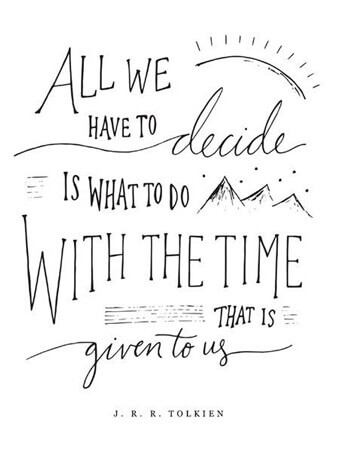 ALL WE
HAVE TO decide
IS WHAT TO DO
WITH THE TIME
THAT IS
given to us
J. R. R. TOLKIEN